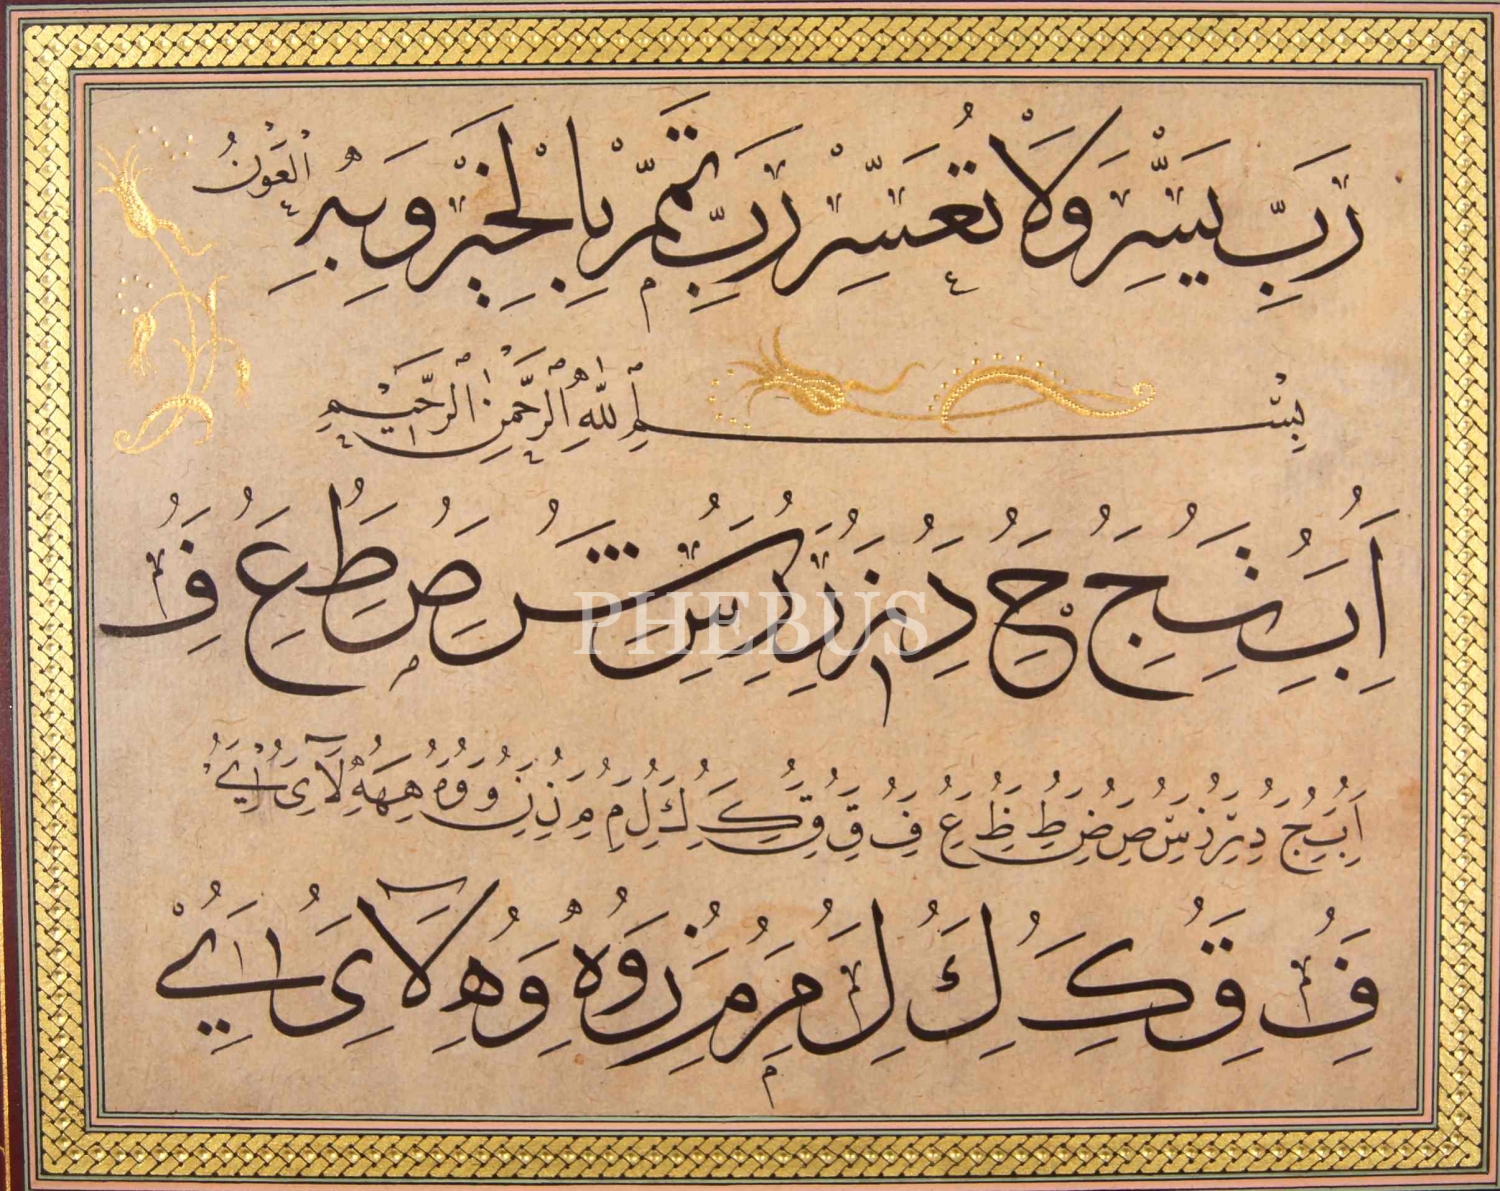 رَبِّ يَسِّرْ وَلَا تُعَسِّرْ رَبِّ تَمِّمْ بِالْخَيْرِ وَبِهِ الْعَوْنُ
بِسْمِ اللهِ الرَّحْمٰنِ الرَّحِيمِ
ا ب ث ج ح د ز ر س ش ص ط ع ف
PHEBUS
ا ب ج د ر ز س ص ض ط ظ ع ف ق ق ك ك ل م م ن ن و وه ه ه لا ى ي
ف ق ك ك ل م م ن وه و ه لا ى ي